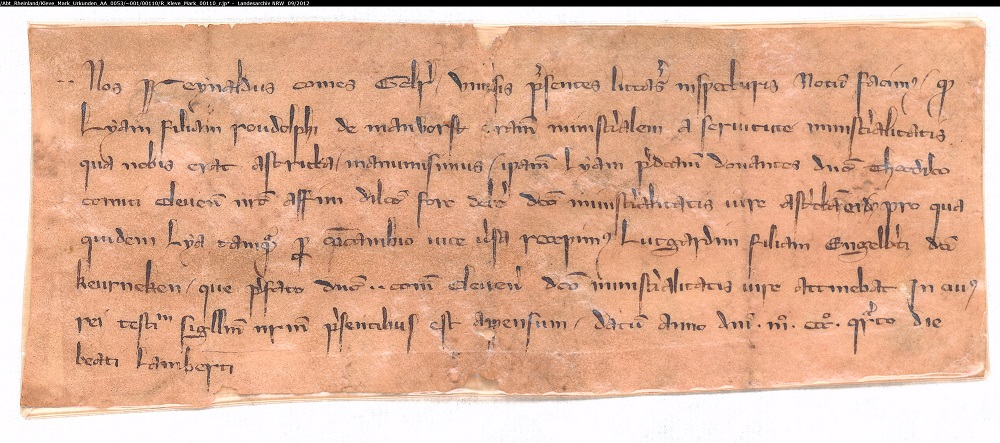 /Abt_Rheinland/Kleve_Mark_Urkunden_AA_0053/~001/00110/R_Kleve_Mark_00110_r.jp* - Landesarchiv NRW 09/2012
Nos Reynaldus comes Gelr̄ / Univ̄sis p̄sentes litt̄as inspecturis Notū facim⁹ / q̄
Lyam filiam roudolphi de manvorst n̄ram ministīalem a servitute minist̄ialitatis
qua nobis erat astricta / manumisimus / ip̄am Lyam p̄dc̄am donantes dn̄o Theod̄ico
comiti Cleven̄ nr̄o affini dilc̄o fore dc̄o minist̄ialitatis iure pro qua
quidem Lya tamq̄ p̄ c̄cambio vice v̄sa recepim⁹ Lutgardim filiam Engelb̄ti dc̄i
keurneken / que p̄fato dn̄o ·· com̄ Cleven̄ dc̄o minist̄ialitatis iure attinebat In cui⁹
rei testiᵐ sigillūm nr̄m p̄sentibus est apensum / datum anno dn̄i · mº · cccº · q̄rto die
beati Lamberti